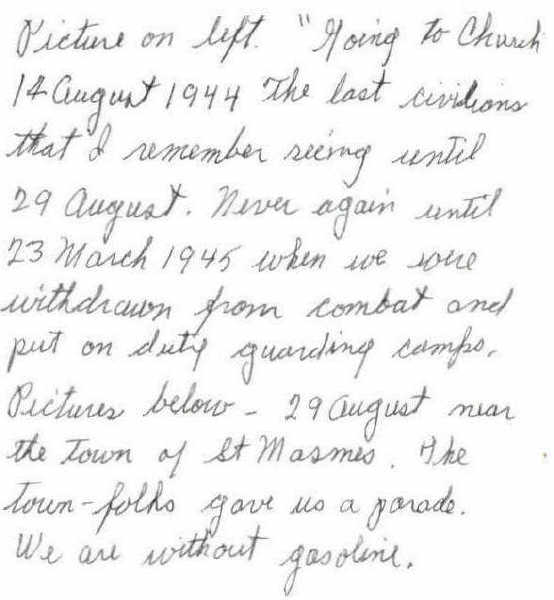 Picture on left. "Going to Church
14 August 1944 The last civilians
that I remember seeing until
29 August. Never again until
23 March 1945 when we were
withdrawn from combat and
put on duty guarding camps.
Pictures below - 29 August near
the town of St Masmes. The
town-folks gave us a parade.
We are without gasoline.